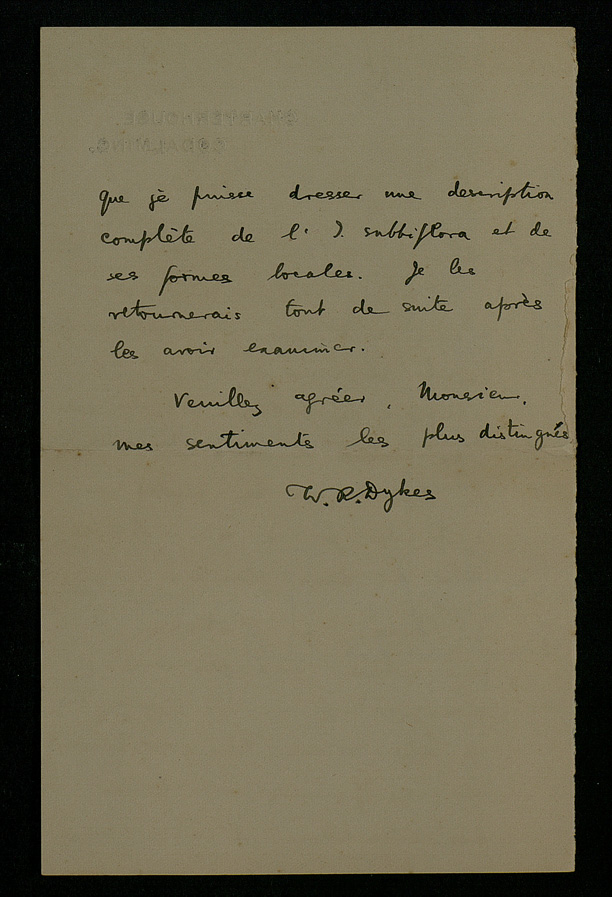 CHARTERHOUSE.
GODALMING.
que je puisse dresser une description
complète de l' I. subbiflora et de
ses formes locales. Je les
retournerais tout de suite après
les avoir examiner.
Veuillez agréer, Monsieur,
mes sentiments les plus distingués
W. R. Dykes